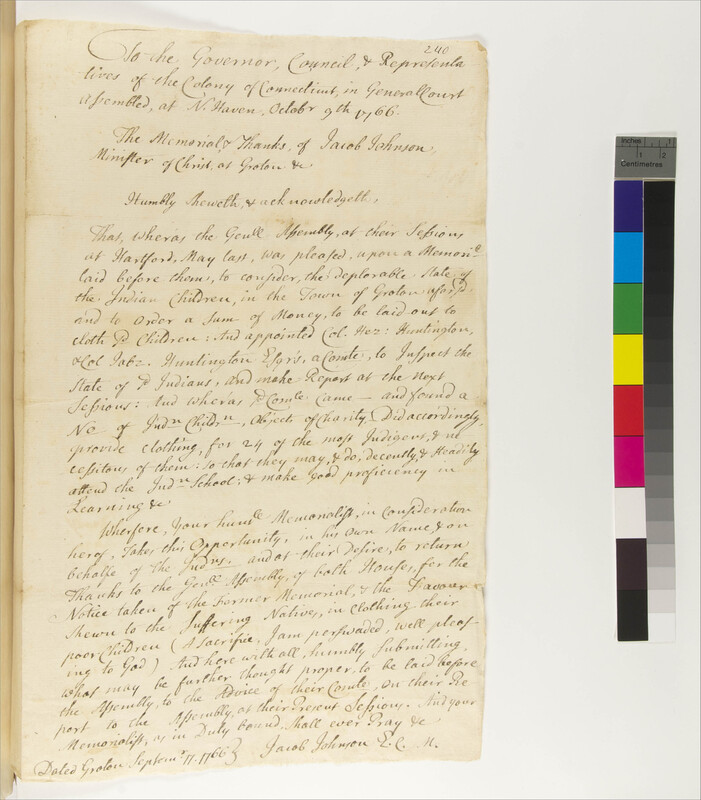 240
To the Governor, Council, & Representa
tives of the Colony of Connecticut, in General Court
Assembled, at N. Haven, Octobr 9th 1766.
The Memorial, & Thanks, of Jacob Johnson,
Minister of Christ, at Groton &c
Humbly Sheweth, & acknowledgeth,
That, wheras the Genll Assembly, at their Sessions
at Hartford, May last, was pleased, upon a Memoril
laid before them, to consider, the deplorable State of
the Indian Children, in the Town of Groton aforsd
and to order a Sum of Money, to be laid out to
cloth sd Children: And appointed Col. Hez: Huntington,
& Col Jabz. Huntington Esqrs, a Comte, to Inspect the
State of sd Indians, and make Report at the next
Sessions: And wheras sd Comte Came — and found a
No of Indn Childrn, Objects of Charity, Did accordingly,
provide Clothing, for 24 of the most Indigent, & ne
cessitous of them: So that they may, & do, decently, & Steadily
attend the Indn School: & make good proficiency in
Learning &c
Wherfore, Your humle Memorialist, in Consideration
herof, Takes this Opportunity, in his Own Name, & on
behalfe of the Indns. and at their Desire, to return
Thanks to the Genll Assembly, of both Houses, for the
Notice taken of the Former Memorial, & the Favour
Shewn to the Suffering Natives, in Clothing their
poor Children (A Sacrifice, I am perswaded, well pleas
ing to God) And here with all, humbly Submitting,
what may be further thought proper, to be laid before
the Assembly, to the Advice of their Comte, on their Re
port to the Assembly, at their Present Sessions. And your
Memorialist, as in Duty bound, Shall ever Pray &c
Dated Groton Septemr 17. 1766 } Jacob Johnson E. C. M.
inches 1 2
Centimetres